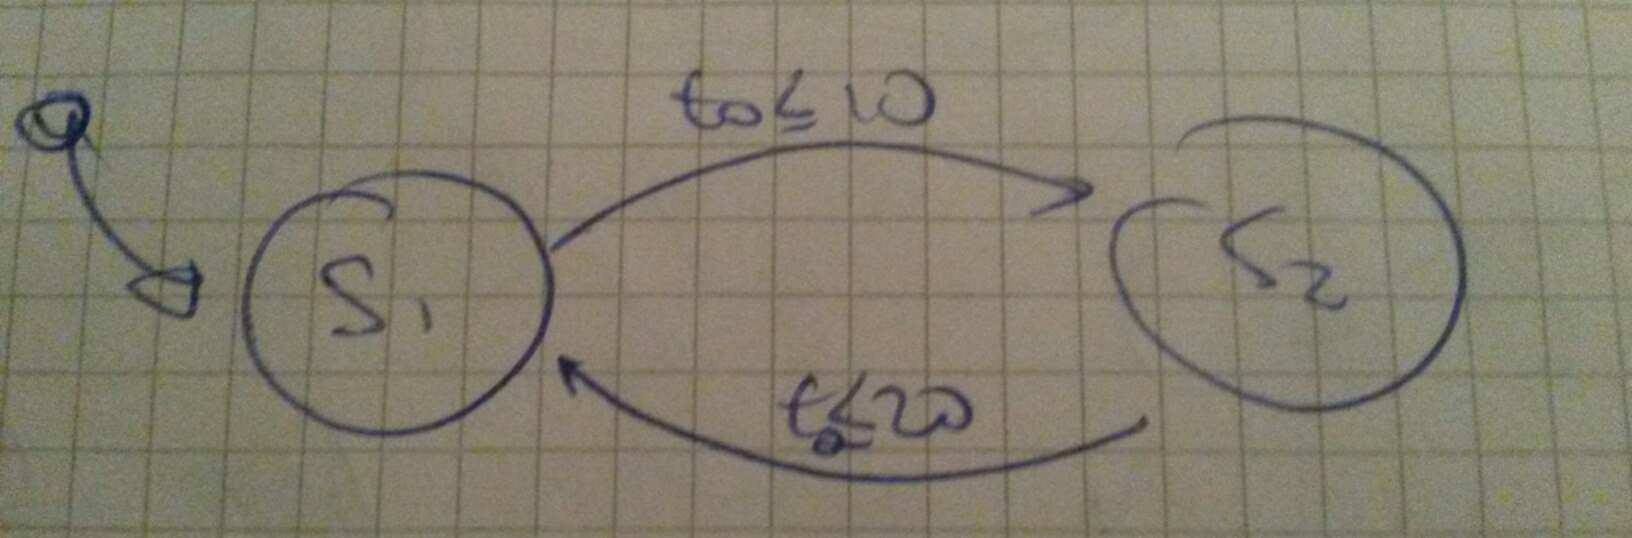 to≤10
S1
S2
to≤20